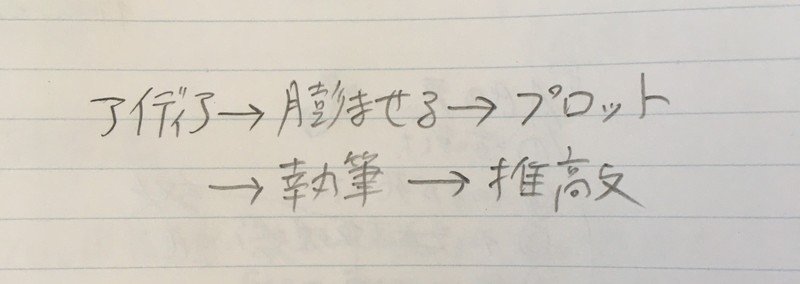 アイディア→膨ませる→プロット
→執筆→推敲